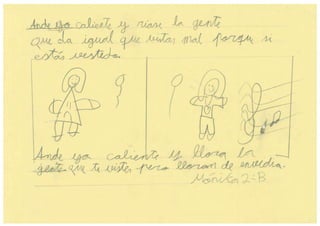 Ande yo caliente y ríase la gente
que da igual que vistas mal porque si
estás vestida.
Ande yo caliente y llora la
gente que te vistes pero lloran de envidia.
Mónica 2º B